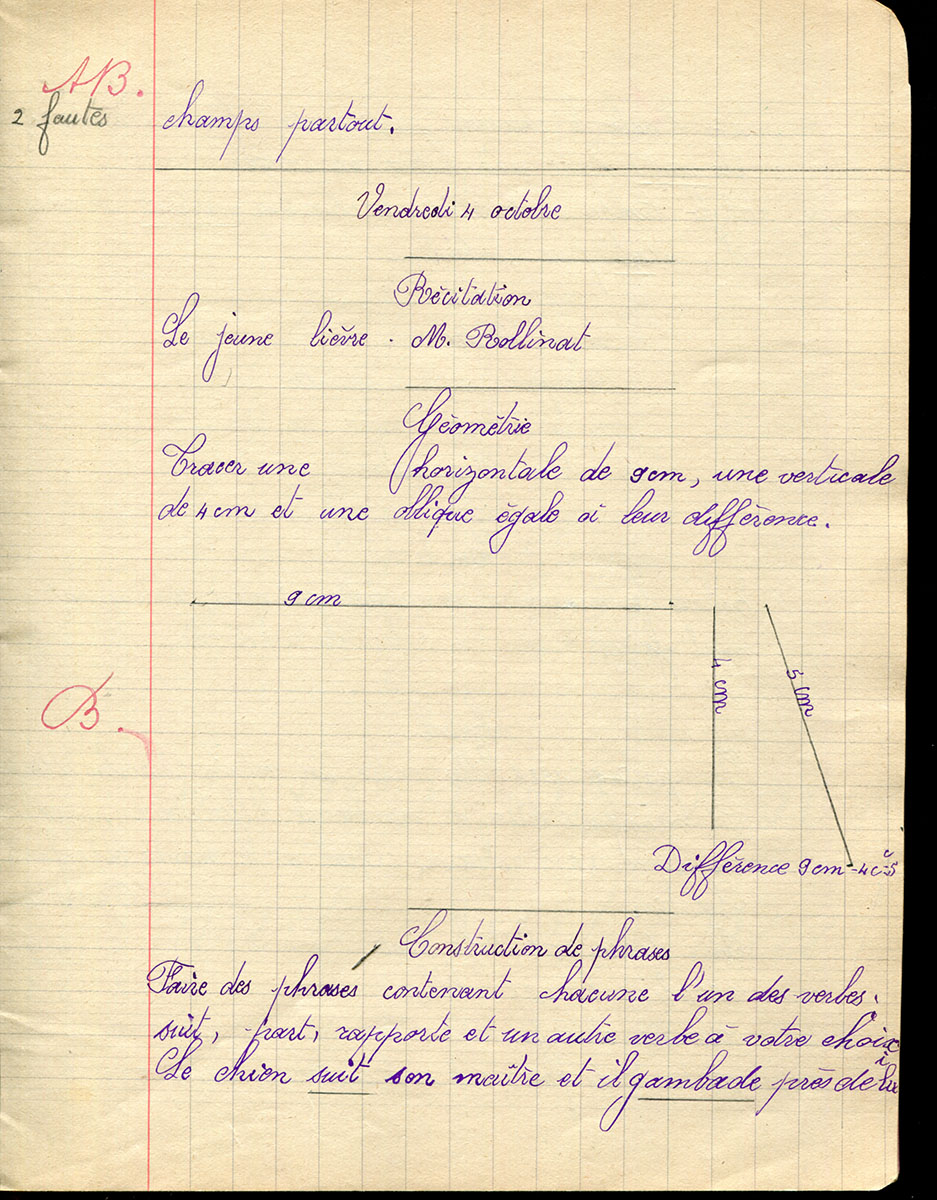 AB.
2 fautes
champs partout.
Vendredi 4 octobre
Récitation
Le jeune lièvre . M. Rollinat
Géométrie
Tracer une horizontale de 9cm, une verticale
de 4cm et une oblique égale à leur différence.
9 cm
4 cm
5 cm
B.
Différence 9cm-4c=5
c
Construction de phrases
Faire des phrases contenant chacune l'un des verbes.
suit, part, rapporte et un autre verbe à votre choix
Le chien suit son maître et il gambade près de lui